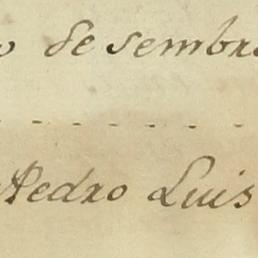 o de sembra
Pedro Luis